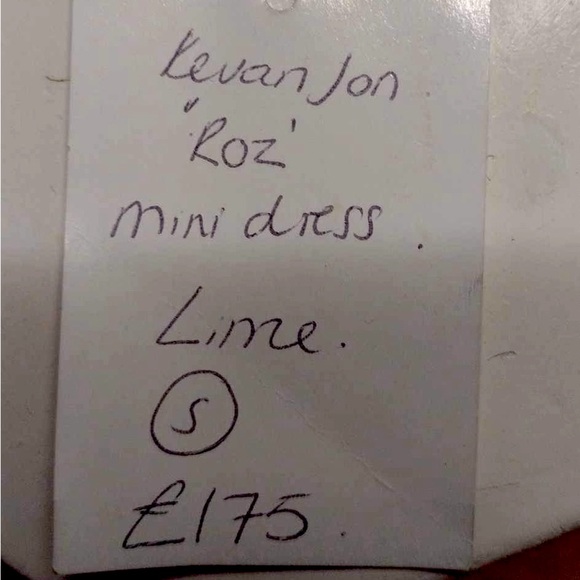 Kevan Jon
"Roz'
mini dress.
Lime.
S
£175.